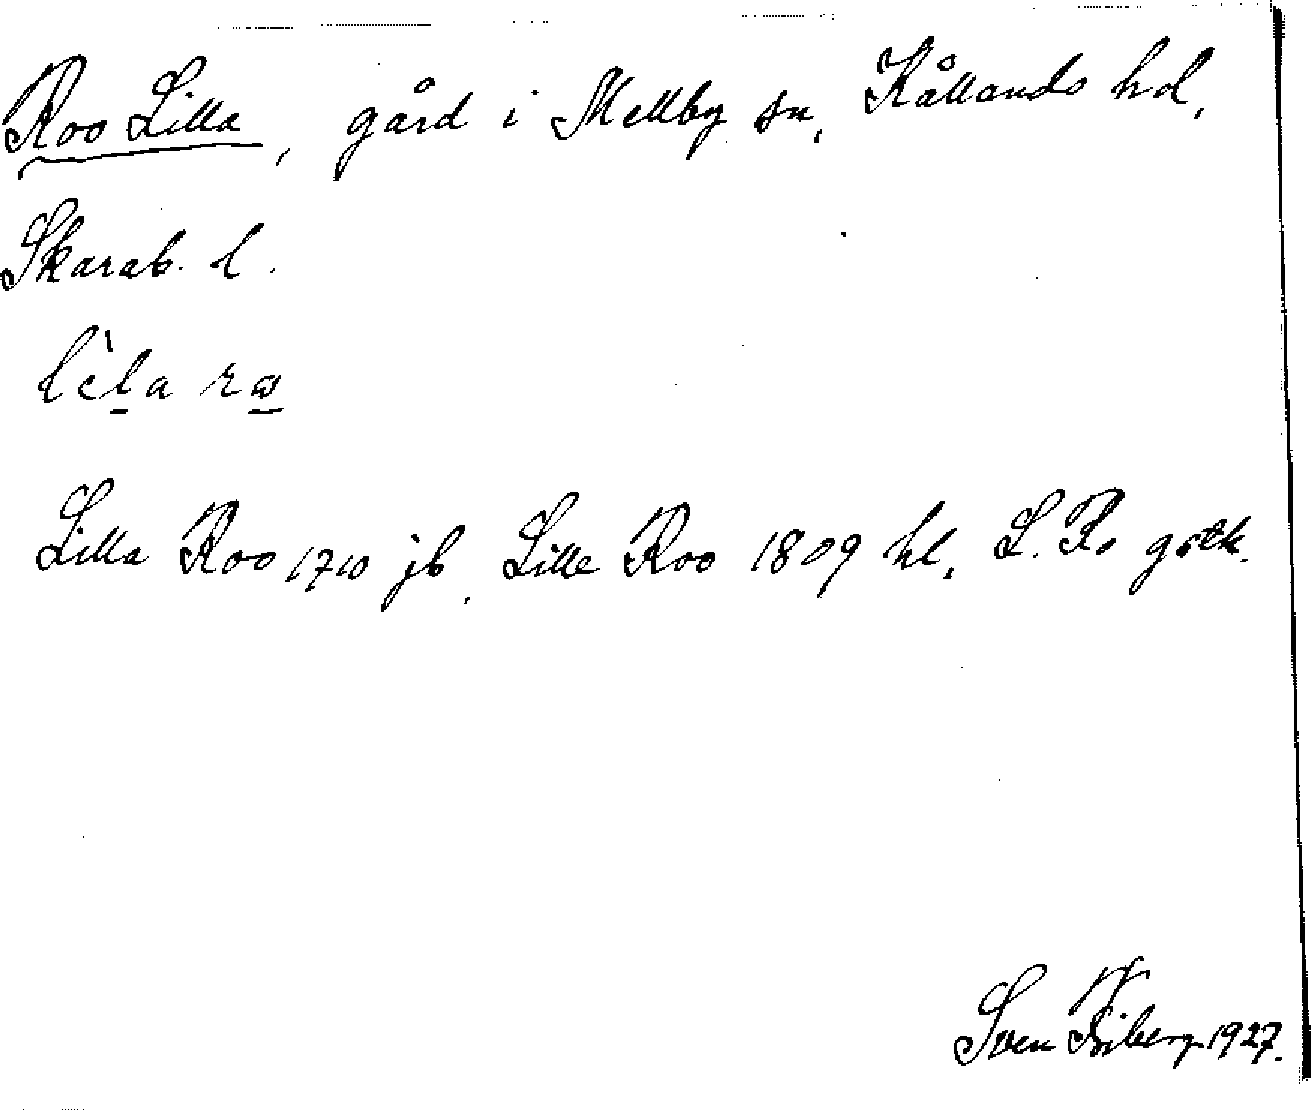 Roo Lilla, gård i Mellby sn, Kållands hd,
Skarab. l.
Lilla Roo 1710 jb, Lille Roo 1809 hl, L. Ro gstk.
Sven Friberg 1927.